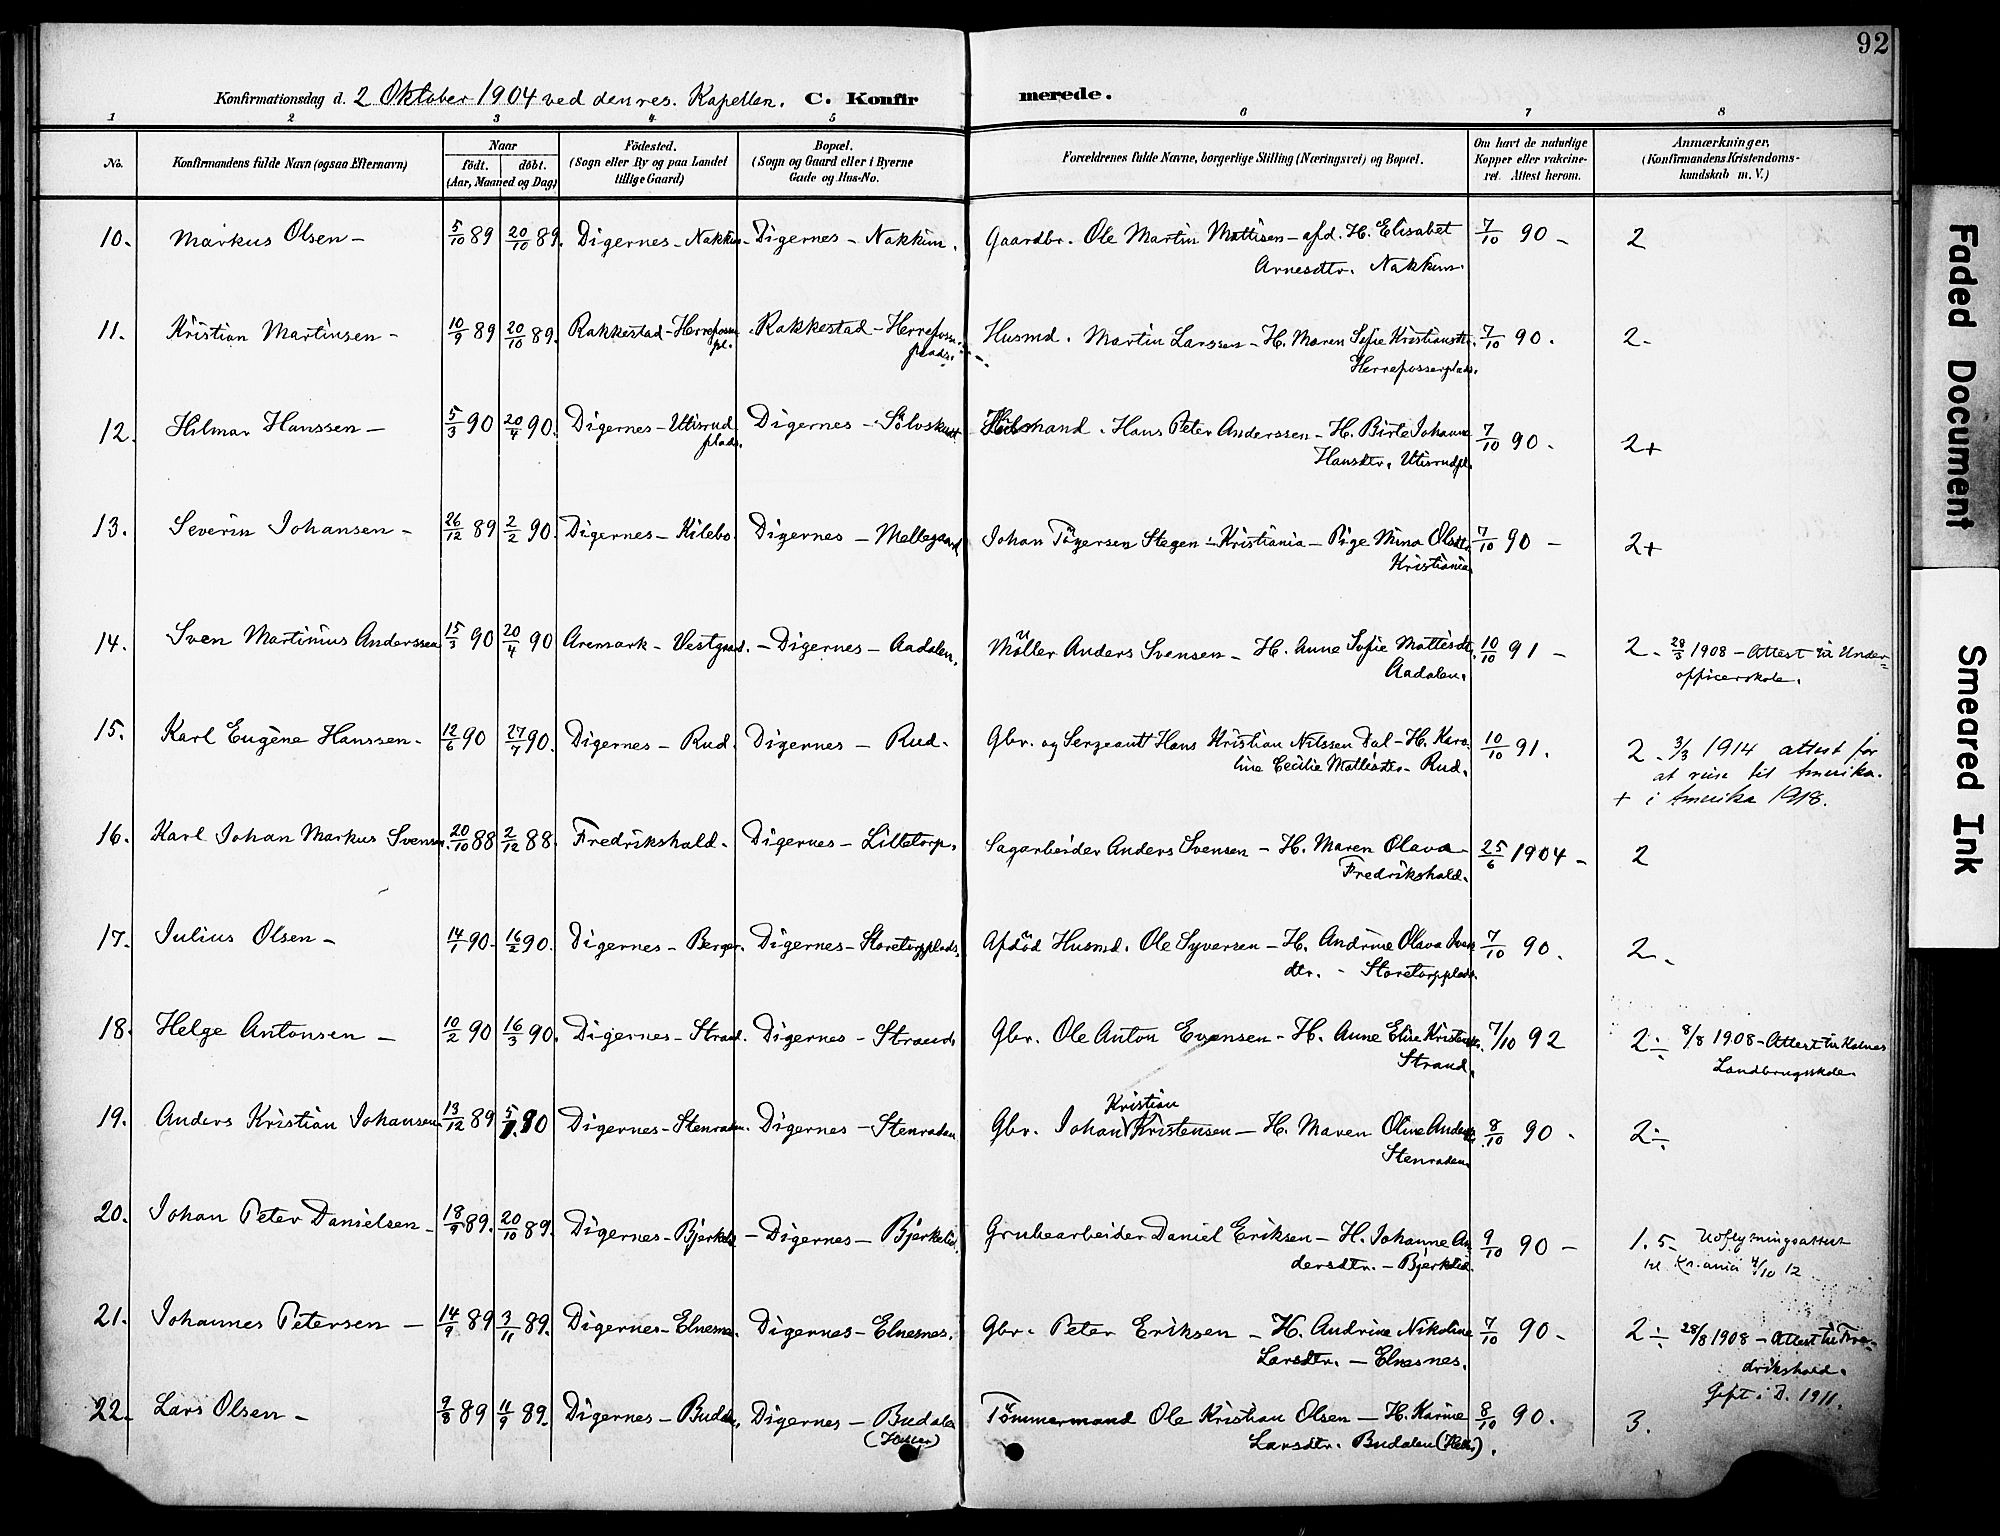 92
Konfirmationsdag d. 2 Oktober 1904 ved den res. Kapellan. C. Konfirmerede.
1 2 3 4 5 6 7 8
No. Konfirmandens fulde Navn (ogsaa Efternavn) Naar født. døbt. (Aar, Maaned og Dag) Fødested. (Sogn eller By og paa Landet tillige Gaard) Bopæl. (Sogn og Gaard eller i Byerne Gade og Hus-No. Forældrenes fulde Navne, borgerlige Stilling (Næringsvei) og Bopæl. Om havt de naturlige Kopper eller vakcineret. Attest herom. Anmærkninger. (Konfirmandens Kristendomskundskab m. V.)
10. Markus Olsen – 5/10 89 20/10 89. Digernes – Nakkim – Digernes – Nakkim. Gaardbr. Ole Martin Mattisen – afd. H. Elisabet 7/10 90 – 2
Arnesdtr. Nakkim.
11. Kristian Martinsen – 10/9 89 20/10 89. Rakkestad – pl. Rakkestad – plads. Husmd. Martin Larssen – H. Maren Sofie Kristiansdtr. 7/10 90. 2 –
12. Hilmar Hanssen – 5/3 90 20/4 90. Digernes – Utisrud plads. Digernes – Sölvskudt Hans Peter Anderssen – H. Birte Johanne 7/10 90. 2+
Hansdtr. Utisrudpl.
13. Severin Johansen – 26/12 89 2/2 90. Digernes – Kilebo. Digernes – Mellegaard Johan Tögersen Stegen i Kristiania – Pige Mina Olsdtr. 7/10 90 – 2+
Kristiania.
14. Sven Martinius Anderssen 15/3 90 20/4 90 Aremark – Vestgaard. – Digernes – Aadalen. Möller Anders Svensen – H. Anne Sofie Mattisdt. 10/10 91 – 2 – 28/3 1908 – Attest til Under-
Aadalen. officerskole.
15. Karl Eugène Hanssen – 12/6 90 27/7 90. Digernes – Rud. Digernes – Rud. Gbr. og Sergeant Hans Kristian Nilssen Dal – H. Karo- 10/10 91. 2 – 3/3 1914 attest for
line Cecilie Mattisdtr – Rud. at reise til Amerika.
+ i Amerika 1918.
16. Karl Johan Markus Svensen. 20/10 88 2/12 88. Fredrikshald. Digernes – Lilletorp. Sagarbeider Anders Svensen – H. Maren Olava 25/6 1904 – 2
Fredrikshald.
17. Julius Olsen – 14/1 90. 16/2 90. Digernes – Berger. Digernes – Storetorpplads. Afdöd Husmd. Ole Syversen – H. Andrine Olava Ivers 7/10 90. 2 –
dtr. – Storetorpplads.
18. Helge Antonsen – 10/2 90 16/3 90. Digernes – Strand. Digernes – Strand. Gbr. Ole Anton Evensen – H. Anne Elise Kristensdtr. 7/10 92 2÷ 8/8 1908 – Attest til Kalnes
Strand. Landbrugsskole.
19. Anders Kristian Johansen. 13/12 89 5/1 90 Digernes – Stenraden. Digernes – Stenraden Gbr. Johan Kristian Kristensen – H. Maren Oline Andersdtr. 8/10 90 – 2÷
Stenraden.
20. Johan Peter Danielsen – 18/9 89. 20/10 89. Digernes – Bjerkelid – Digernes – Bjerkelid. Grubearbeider Daniel Eriksen – H. Johanne An 9/10 90 – 1.5 – Udflytningsattest
dersdtr. – Bjerkelid. til Kr.ania 4/10 12
21. Johannes Petersen – 14/9 89 3/11 89. Digernes – Elnesnes. Digernes – Elnesnes. Gbr. Peter Eriksen – H. Andrine Nikoline 7/10 90 – 2÷ 28/8 1908 – Attest til Fre-
Larsdtr. – Elnesnes. drikshald.
Gift i D. 1911.
22. Lars Olsen – 9/8 89 11/9 89. Digernes – Budalen. Digernes – Budalen Tömmermand Ole Kristian Olsen – H. Karine 8/10 90. 3.
Larsdtr. Budalen
Faded Document
Smeared Ink